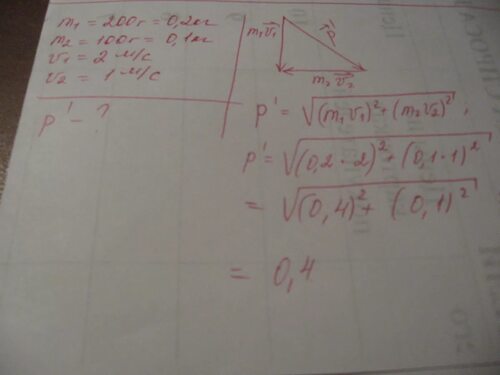 m₁ = 200г = 0,2кг
m₂ = 100г = 0,1кг
v₁ = 2 м/с
v₂ = 1 м/с
p' - ?
m₁v₁
p
m₂v₂
p' = √(m₁v₁)²+(m₂v₂)² ;
p' = √(0,2·2)² + (0,1·1)²
= √(0,4)² + (0,1)²
= 0,4